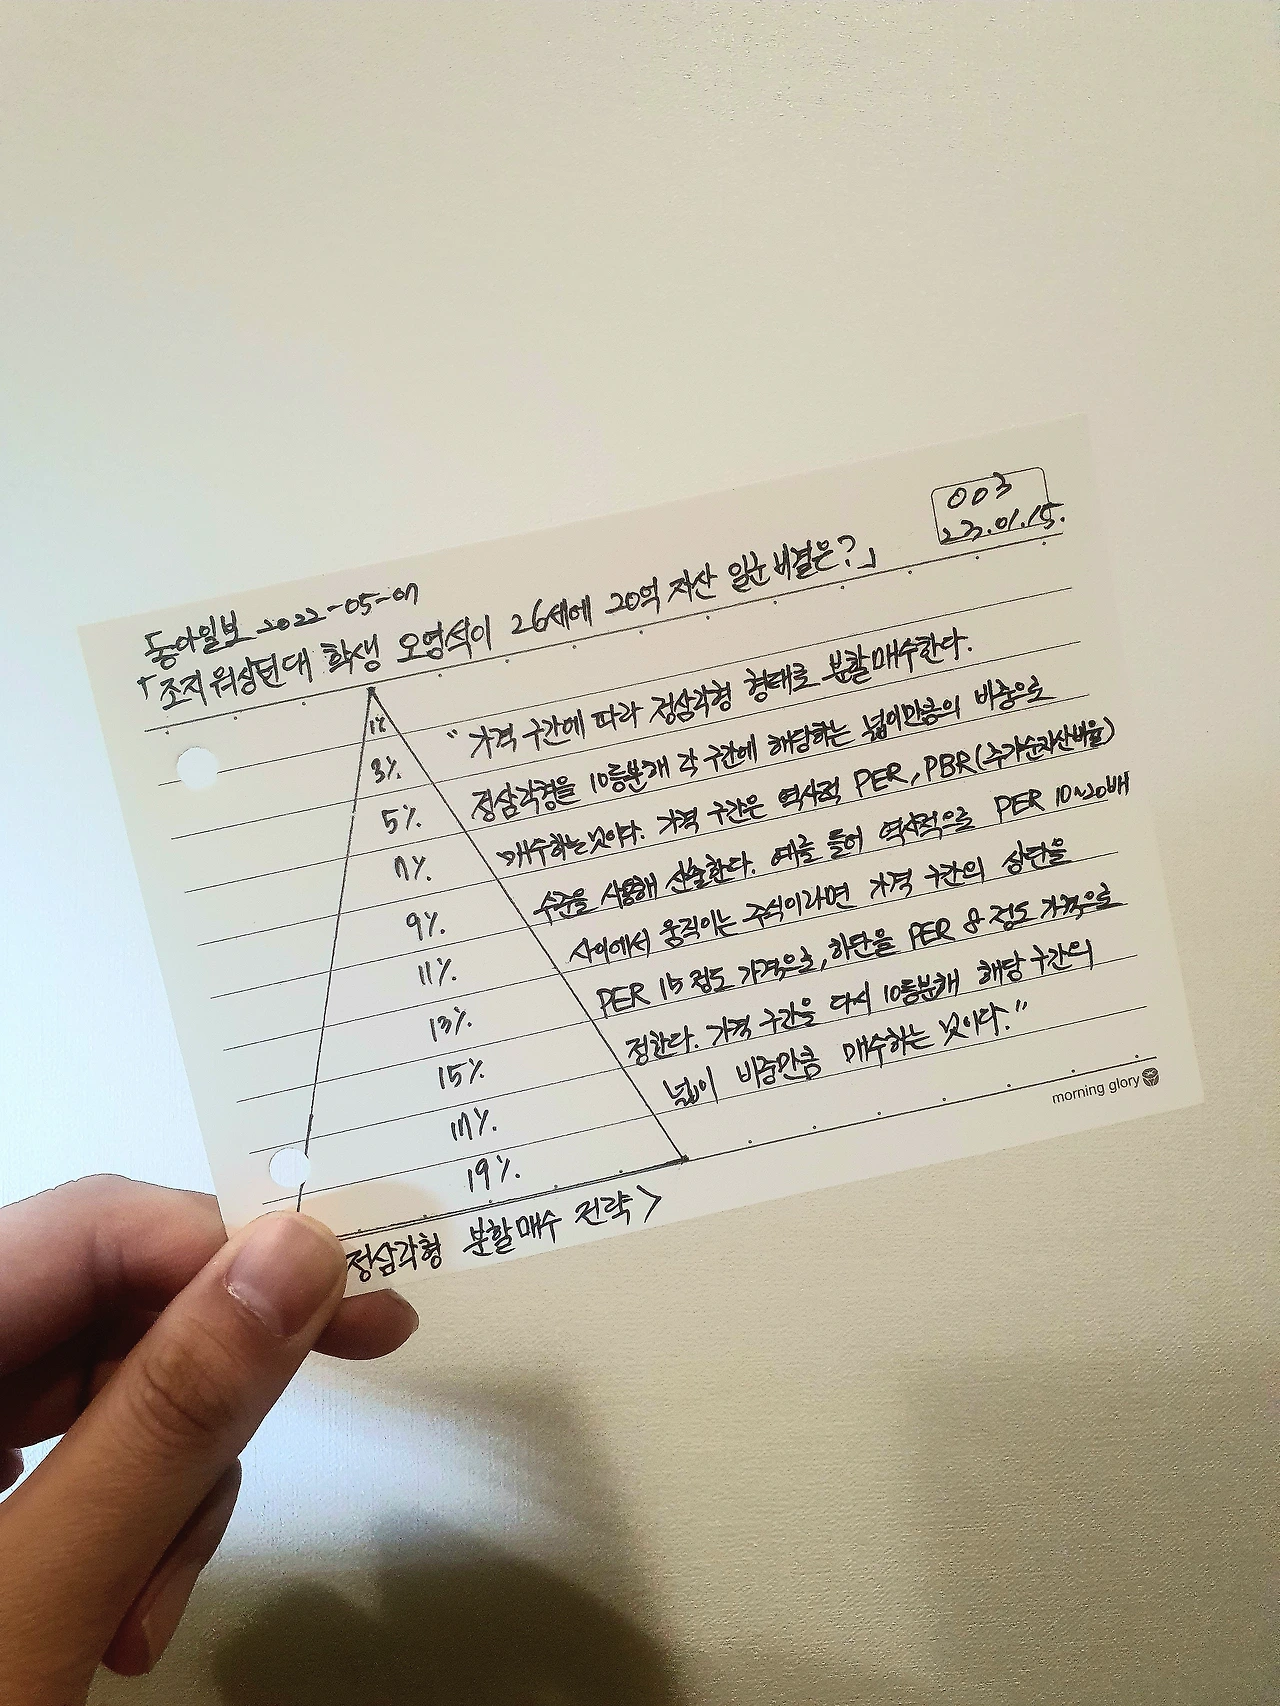 003
23.01.15.
동아일보 2022-05-07
「조지워싱턴대 학생 오영석이 26세에 20억 자산 일군 비결은?」
1%
3%
5%
7%
9%
11%
13%
15%
17%
19%
"가격 구간에 따라 정삼각형 형태로 분할매수한다.
정삼각형을 10등분해 각 구간에 해당하는 넓이만큼의 비중으로
매수하는 것이다. 가격 구간은 역사적 PER, PBR(주가순자산비율)
수준을 사용해 산출한다. 예를 들어 역사적으로 PER 10~20배
사이에서 움직이는 주식이라면 가격 구간의 상단을
PER 15 정도 가격으로, 하단을 PER 8 정도 가격으로
정한다. 가격 구간을 다시 10등분해 해당 구간의
넓이 비중만큼 매수하는 것이다."
정삼각형 분할매수 전략>
morning glory